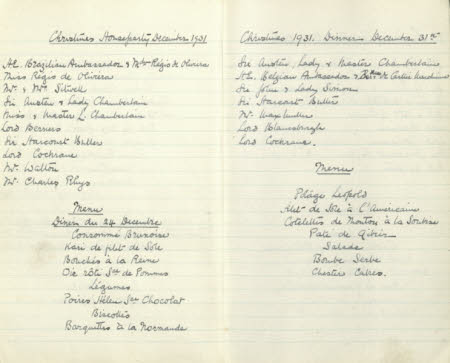 Christmas Houseparty December 1931
H.E. Brazilian Ambassador & Mme Régis de Oliveira
Miss Régis de Oliveira
Mr. & Mrs. Sitwell
Sir Austen & Lady Chamberlain
Miss & Master L. Chamberlain
Lord Berners
Sir Harcourt Butler
Lord Cochrane
Mr. Walton
Mr. Charles Rhys
Menu
Diner du 24 Decembre
Consommé Brunoise
Kari de filet de Sôle
Bouchés à la Reine
Oie rôti Sce de Pommes
Légumes
Poires Hélène Sce Chocolat
Biscotes
Barquettes à la Normande
Christmas 1931. Dinner December 31st
Sir Austen, Lady & Master Chamberlain
H.E. Belgian Ambassador & de Cartier
Sir John & Lady Simon
Sir Harcourt Butler
Mr. Max Muller
Lord Blanesburgh
Lord Cochrane.
Menu
Potage Leopold
filet de Sôle à L'Americaine
Cotelettes de Mouton à la Soubise
Pate de Gibier
Salade
Bombe Serbe
Chester Cakes.